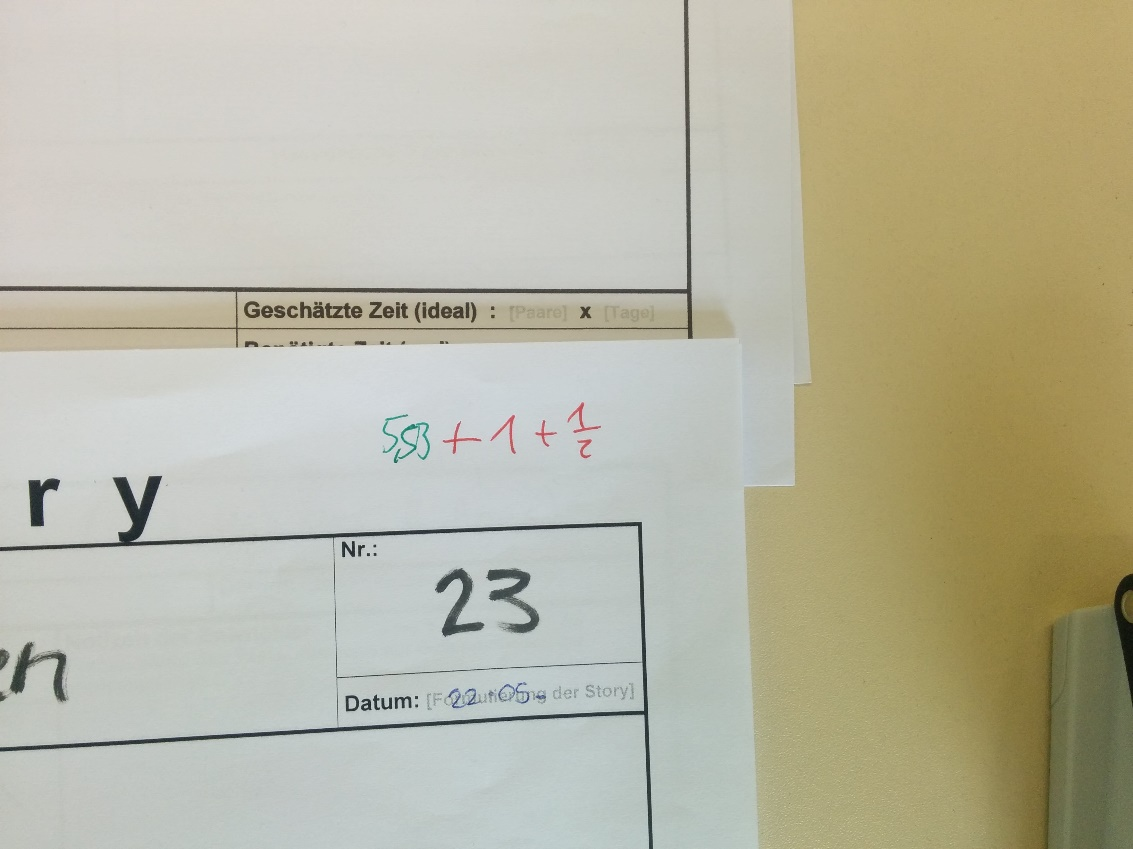 Geschätzte Zeit (ideal) : [Paare] x [Tage]
5,53 + 1 + 1/2
ry
Nr.:
23
en
Datum: [Formulierung der Story] 22.05.